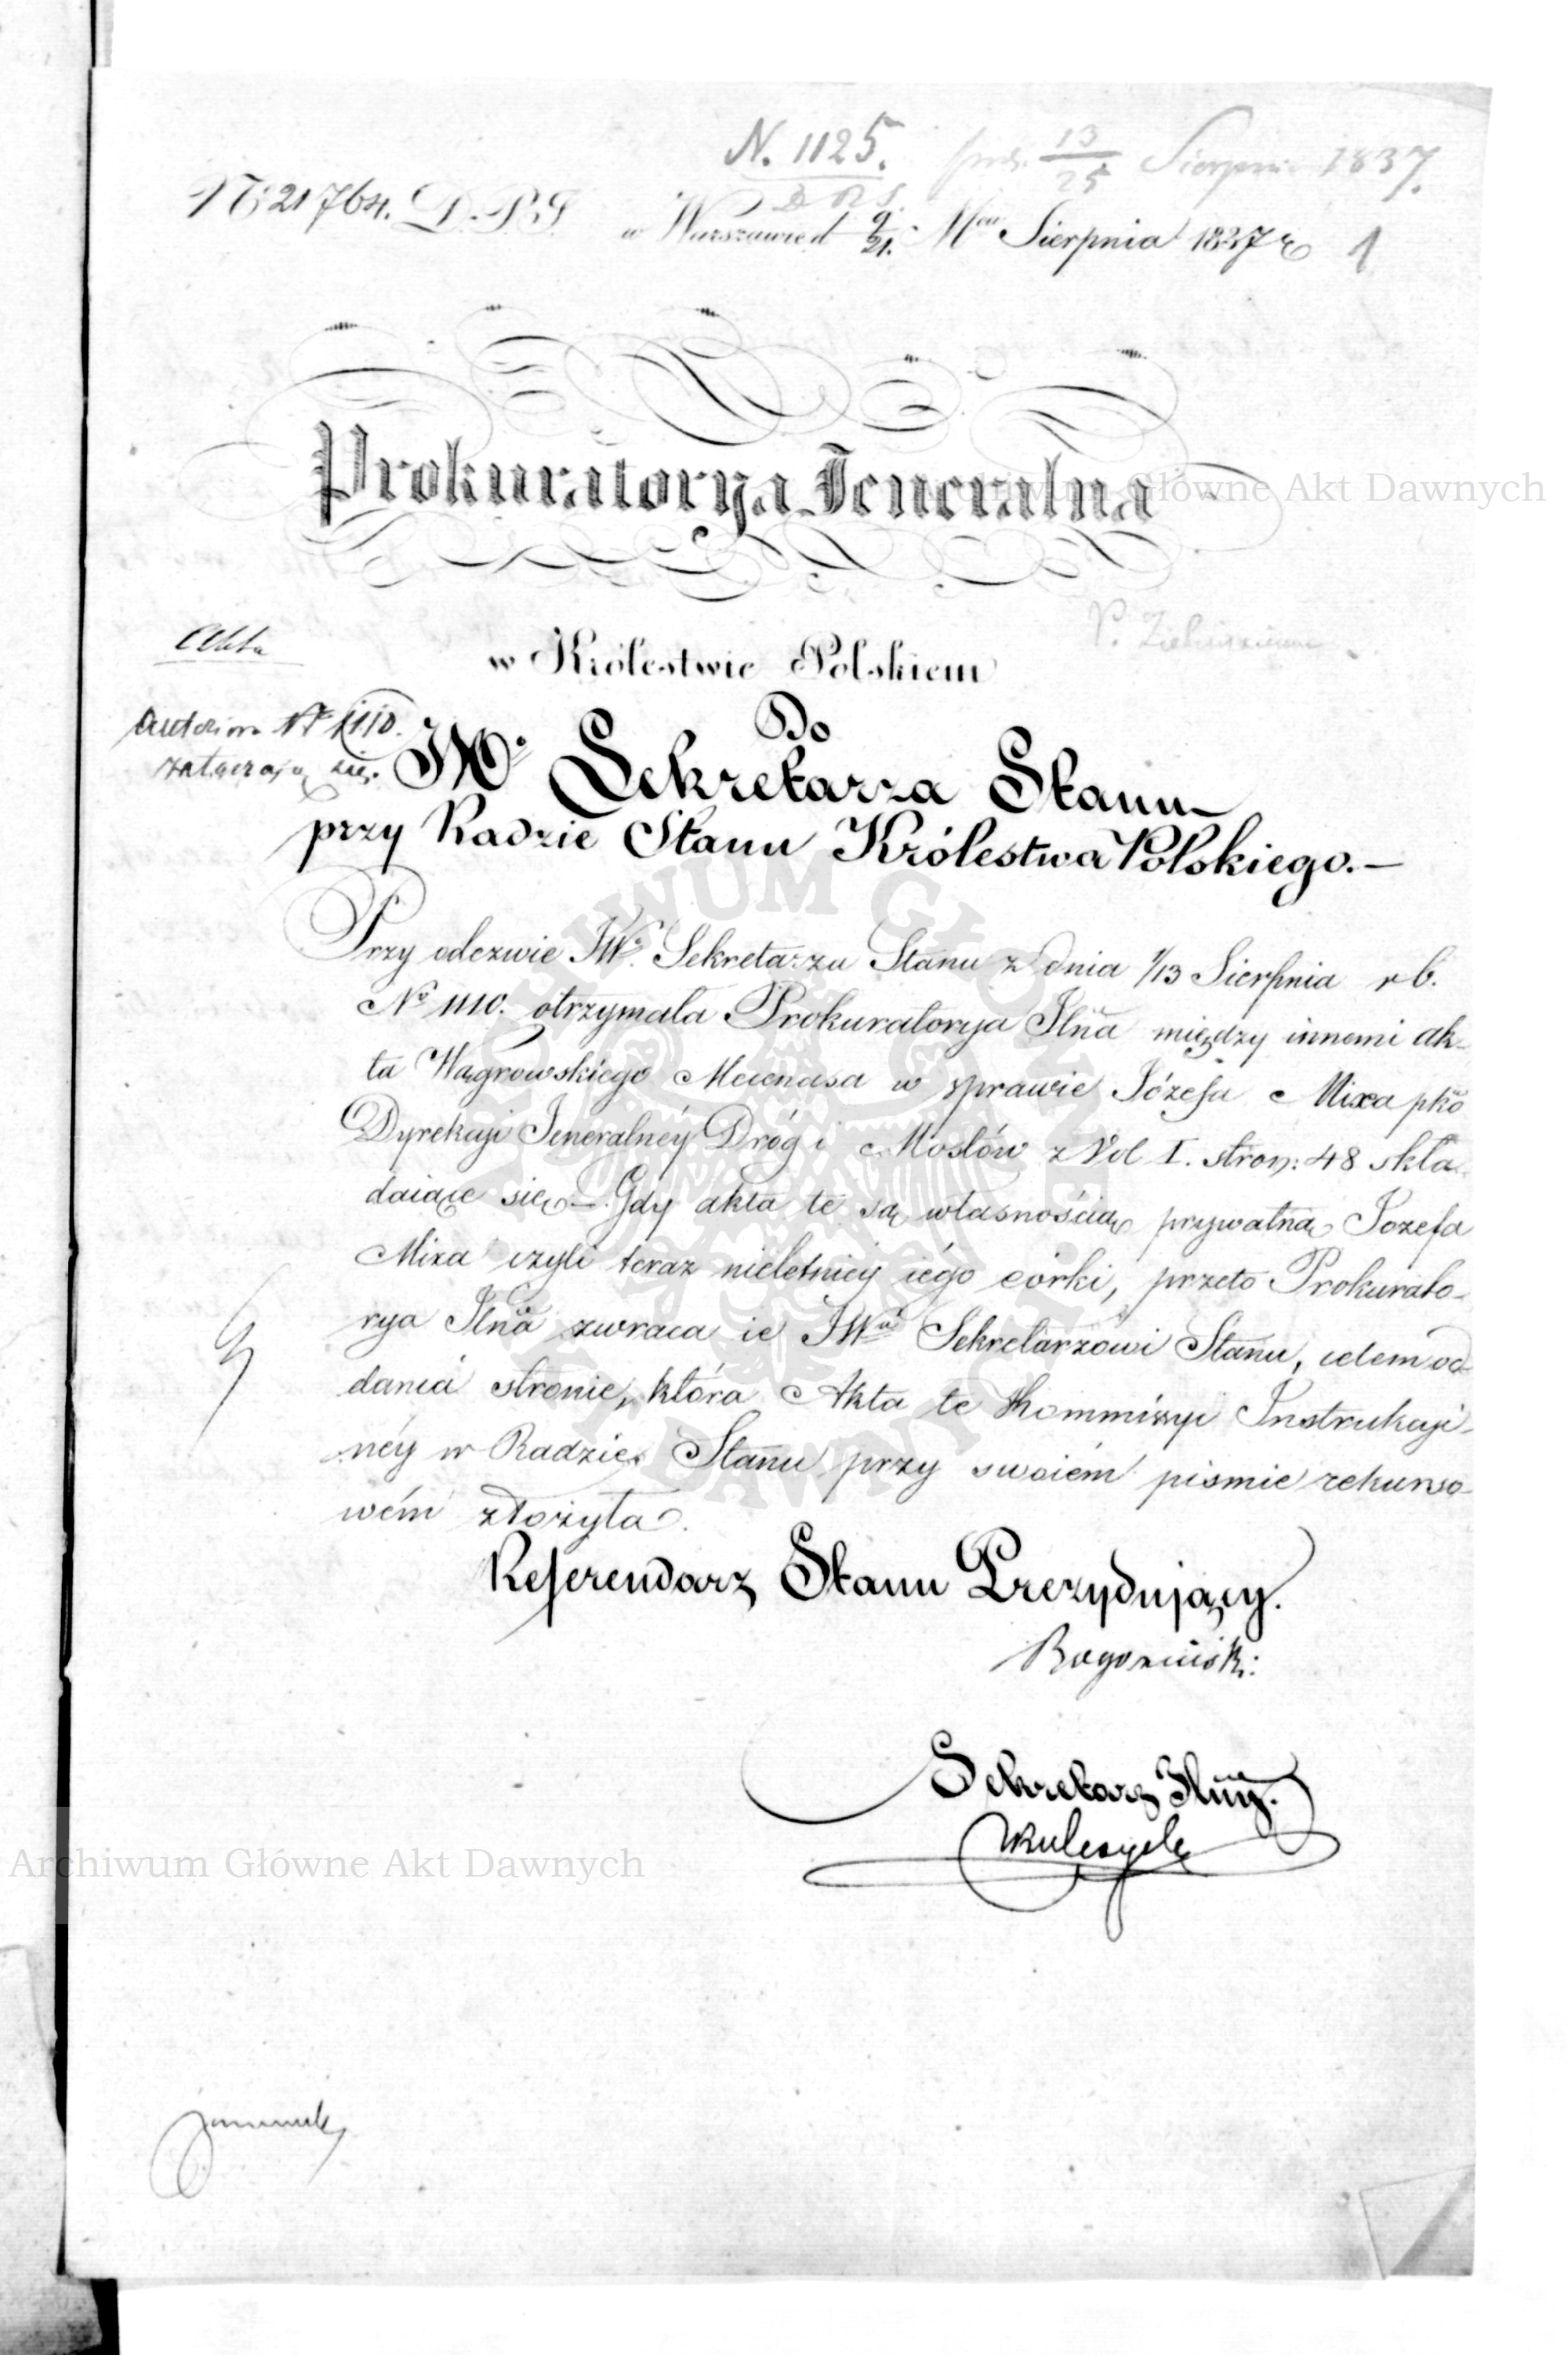 N. 1125. 13/25 Sierpnia 1837.
№ 21764. D.P.S.
w Warszawie d 9/21. Mca Sierpnia 1837 r 1
Prokuratorya Jeneralna
w Królestwie Polskiem
Akta
załączają się.
Do
JWo. Sekretarza Stanu
przy Radzie Stanu Królestwa Polskiego.—
Przy odezwie JWo. Sekretarza Stanu z dnia 1/13 Sierpnia r b.
No 1110. otrzymała Prokuratorya Jlna między innemi ak-
ta Wągrowskiego Mecenasa w sprawie Józefa Mixa pko
Dyrekcyi Jeneralnéy Dróg i Mostów z Vol I. stron: 48 skła-
daiące się.— Gdy akta te są własnością prywatną Jozefa
Mixa czyli teraz nieletniéy iégo córki, przeto Prokurato-
rya Jlna zwraca ie JWmu Sekretarzowi Stanu, celem od-
dania stronie, która Akta te Kommissyi Instrukcyi-
néy w Radzie Stanu przy swoiém pismie rekurso-
wém złożyła.
Referendarz Stanu Prezydujący.
Sekretarz Jlny.
Archiwum Główne Akt Dawnych
Archiwum Główne Akt Dawnych
ARCHIWUM GŁÓWNE AKT DAWNYCH